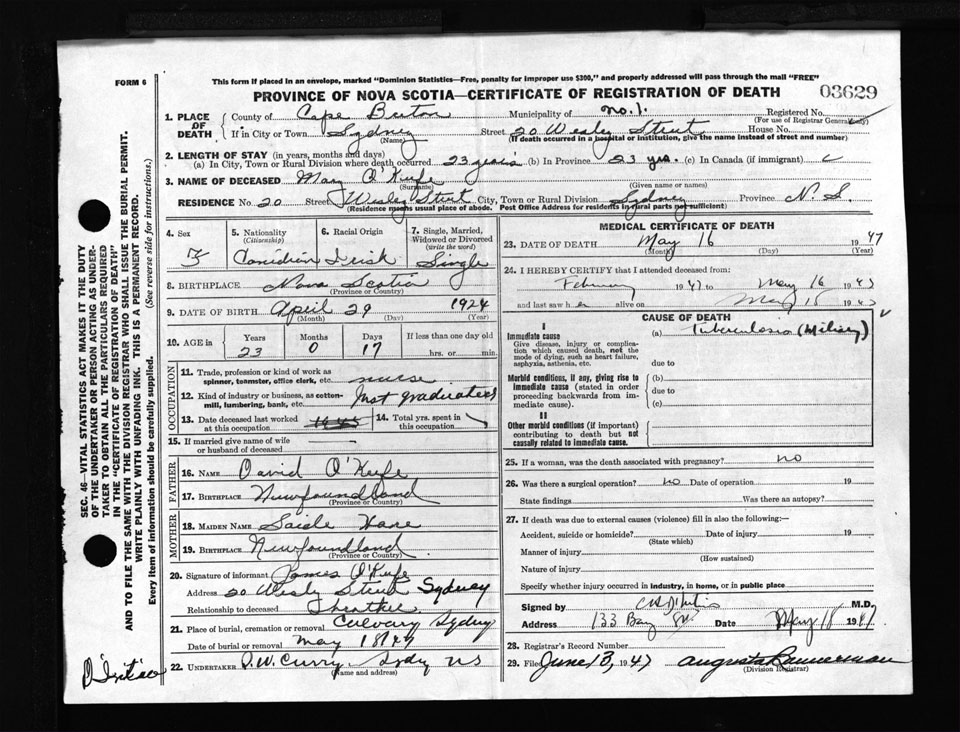 FORM 6
This form if placed in an envelope, marked "Dominion Statistics—Free, penalty for improper use $300," and properly addressed will pass through the mail "FREE"
PROVINCE OF NOVA SCOTIA—CERTIFICATE OF REGISTRATION OF DEATH
03629
1. PLACE OF DEATH
County of Cape Breton Municipality of No. 1. Registered No.
(For use of Registrar General only)
If in City or Town Sydney Street 20 Wesley Street House No.
(Name) (If death occurred in a hospital or institution, give the name instead of street and number)
2. LENGTH OF STAY (in years, months and days)
(a) In City, Town or Rural Division where death occurred 23 years (b) In Province 23 yrs. (c) In Canada (if immigrant)
3. NAME OF DECEASED Mary O'Keefe
(Surname) (Given name or names)
RESIDENCE No. 20 Street Wesley Street City, Town or Rural Division Sydney Province N. S.
(Residence means usual place of abode. Post Office Address for residents in rural parts not sufficient)
4. Sex F
5. Nationality (Citizenship) Canadian
6. Racial Origin Irish
7. Single, Married, Widowed or Divorced (write the word) Single
8. BIRTHPLACE Nova Scotia
(Province or Country)
9. DATE OF BIRTH April 29 1924
(Month) (Day) (Year)
10. AGE in Years Months Days If less than one day old
23 0 17 hrs. or min.
OCCUPATION
11. Trade, profession or kind of work as spinner, teamster, office clerk, etc. nurse
12. Kind of industry or business, as cotton-mill, lumbering, bank, etc. Just graduated
13. Date deceased last worked at this occupation
14. Total yrs. spent in this occupation
15. If married give name of wife or husband of deceased
FATHER
16. NAME David O'Keefe
17. BIRTHPLACE Newfoundland
(Province or Country)
MOTHER
18. MAIDEN NAME Saide
19. BIRTHPLACE Newfoundland
(Province or Country)
20. Signature of informant James O'Keefe
Address 20 Wesley Street Sydney
Relationship to deceased
21. Place of burial, cremation or removal Calvary Sydney
Date of burial or removal May 18 1947
22. UNDERTAKER D.W. Curry Sydy NS
(Name and address)
MEDICAL CERTIFICATE OF DEATH
23. DATE OF DEATH May 16 1947
(Month) (Day) (Year)
24. I HEREBY CERTIFY that I attended deceased from:
February 1947 to May 16 1947
and last saw her alive on May 1947
CAUSE OF DEATH
I
Immediate cause
Give disease, injury or complication which caused death, not the mode of dying, such as heart failure, asphyxia, asthenia, etc.
(a) Tuberculosis (Miliary)
due to
Morbid conditions, if any, giving rise to immediate cause (stated in order proceeding backwards from immediate cause).
(b)
due to
(c)
II
Other morbid conditions (if important) contributing to death but not causally related to immediate cause.
25. If a woman, was the death associated with pregnancy? no
26. Was there a surgical operation? no Date of operation 19
State findings Was there an autopsy?
27. If death was due to external causes (violence) fill in also the following:—
Accident, suicide or homicide? Date of injury 19
(State which)
Manner of injury
(How sustained)
Nature of injury
Specify whether injury occurred in industry, in home, or in public place
Signed by M.D.
Address 133 Bay Date May 18 1947
28. Registrar's Record Number
29. Filed June 13, 1947 Augusta Bannerman
(Division Registrar)
SEC. 46—VITAL STATISTICS ACT MAKES IT THE DUTY
OF THE UNDERTAKER OR PERSON ACTING AS UNDERTAKER TO OBTAIN ALL THE PARTICULARS REQUIRED
IN THE "CERTIFICATE OF REGISTRATION OF DEATH"
AND TO FILE THE SAME WITH THE DIVISION REGISTRAR WHO SHALL ISSUE THE BURIAL PERMIT.
WRITE PLAINLY WITH UNFADING INK. THIS IS A PERMANENT RECORD.
Every item of information should be carefully supplied. (See reverse side for instructions.)